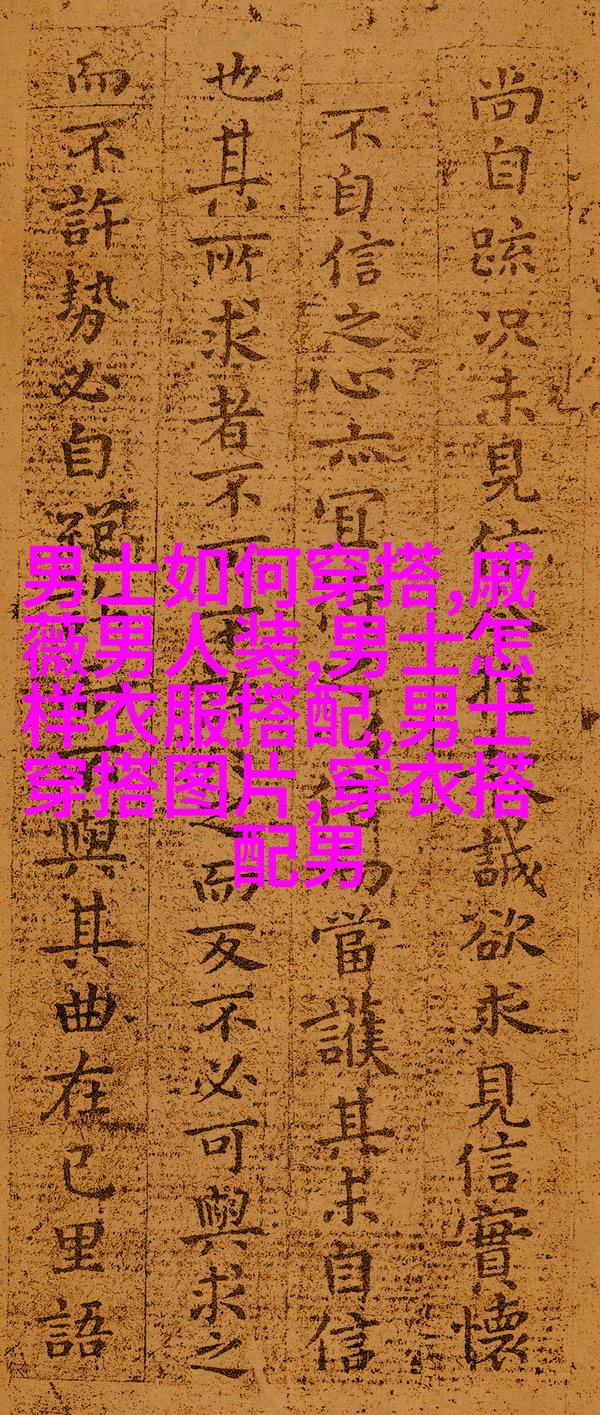 尚自疏况未見信推誠欲求見信實懷
不自信之心亦宜當護其未自信
也其所求者不而反不必可與求之
而不許勢必自與其曲在己里語
男士如何穿搭,戚
薇男人装,男士怎
样衣服搭配,男士
穿搭图片,穿衣搭
配男